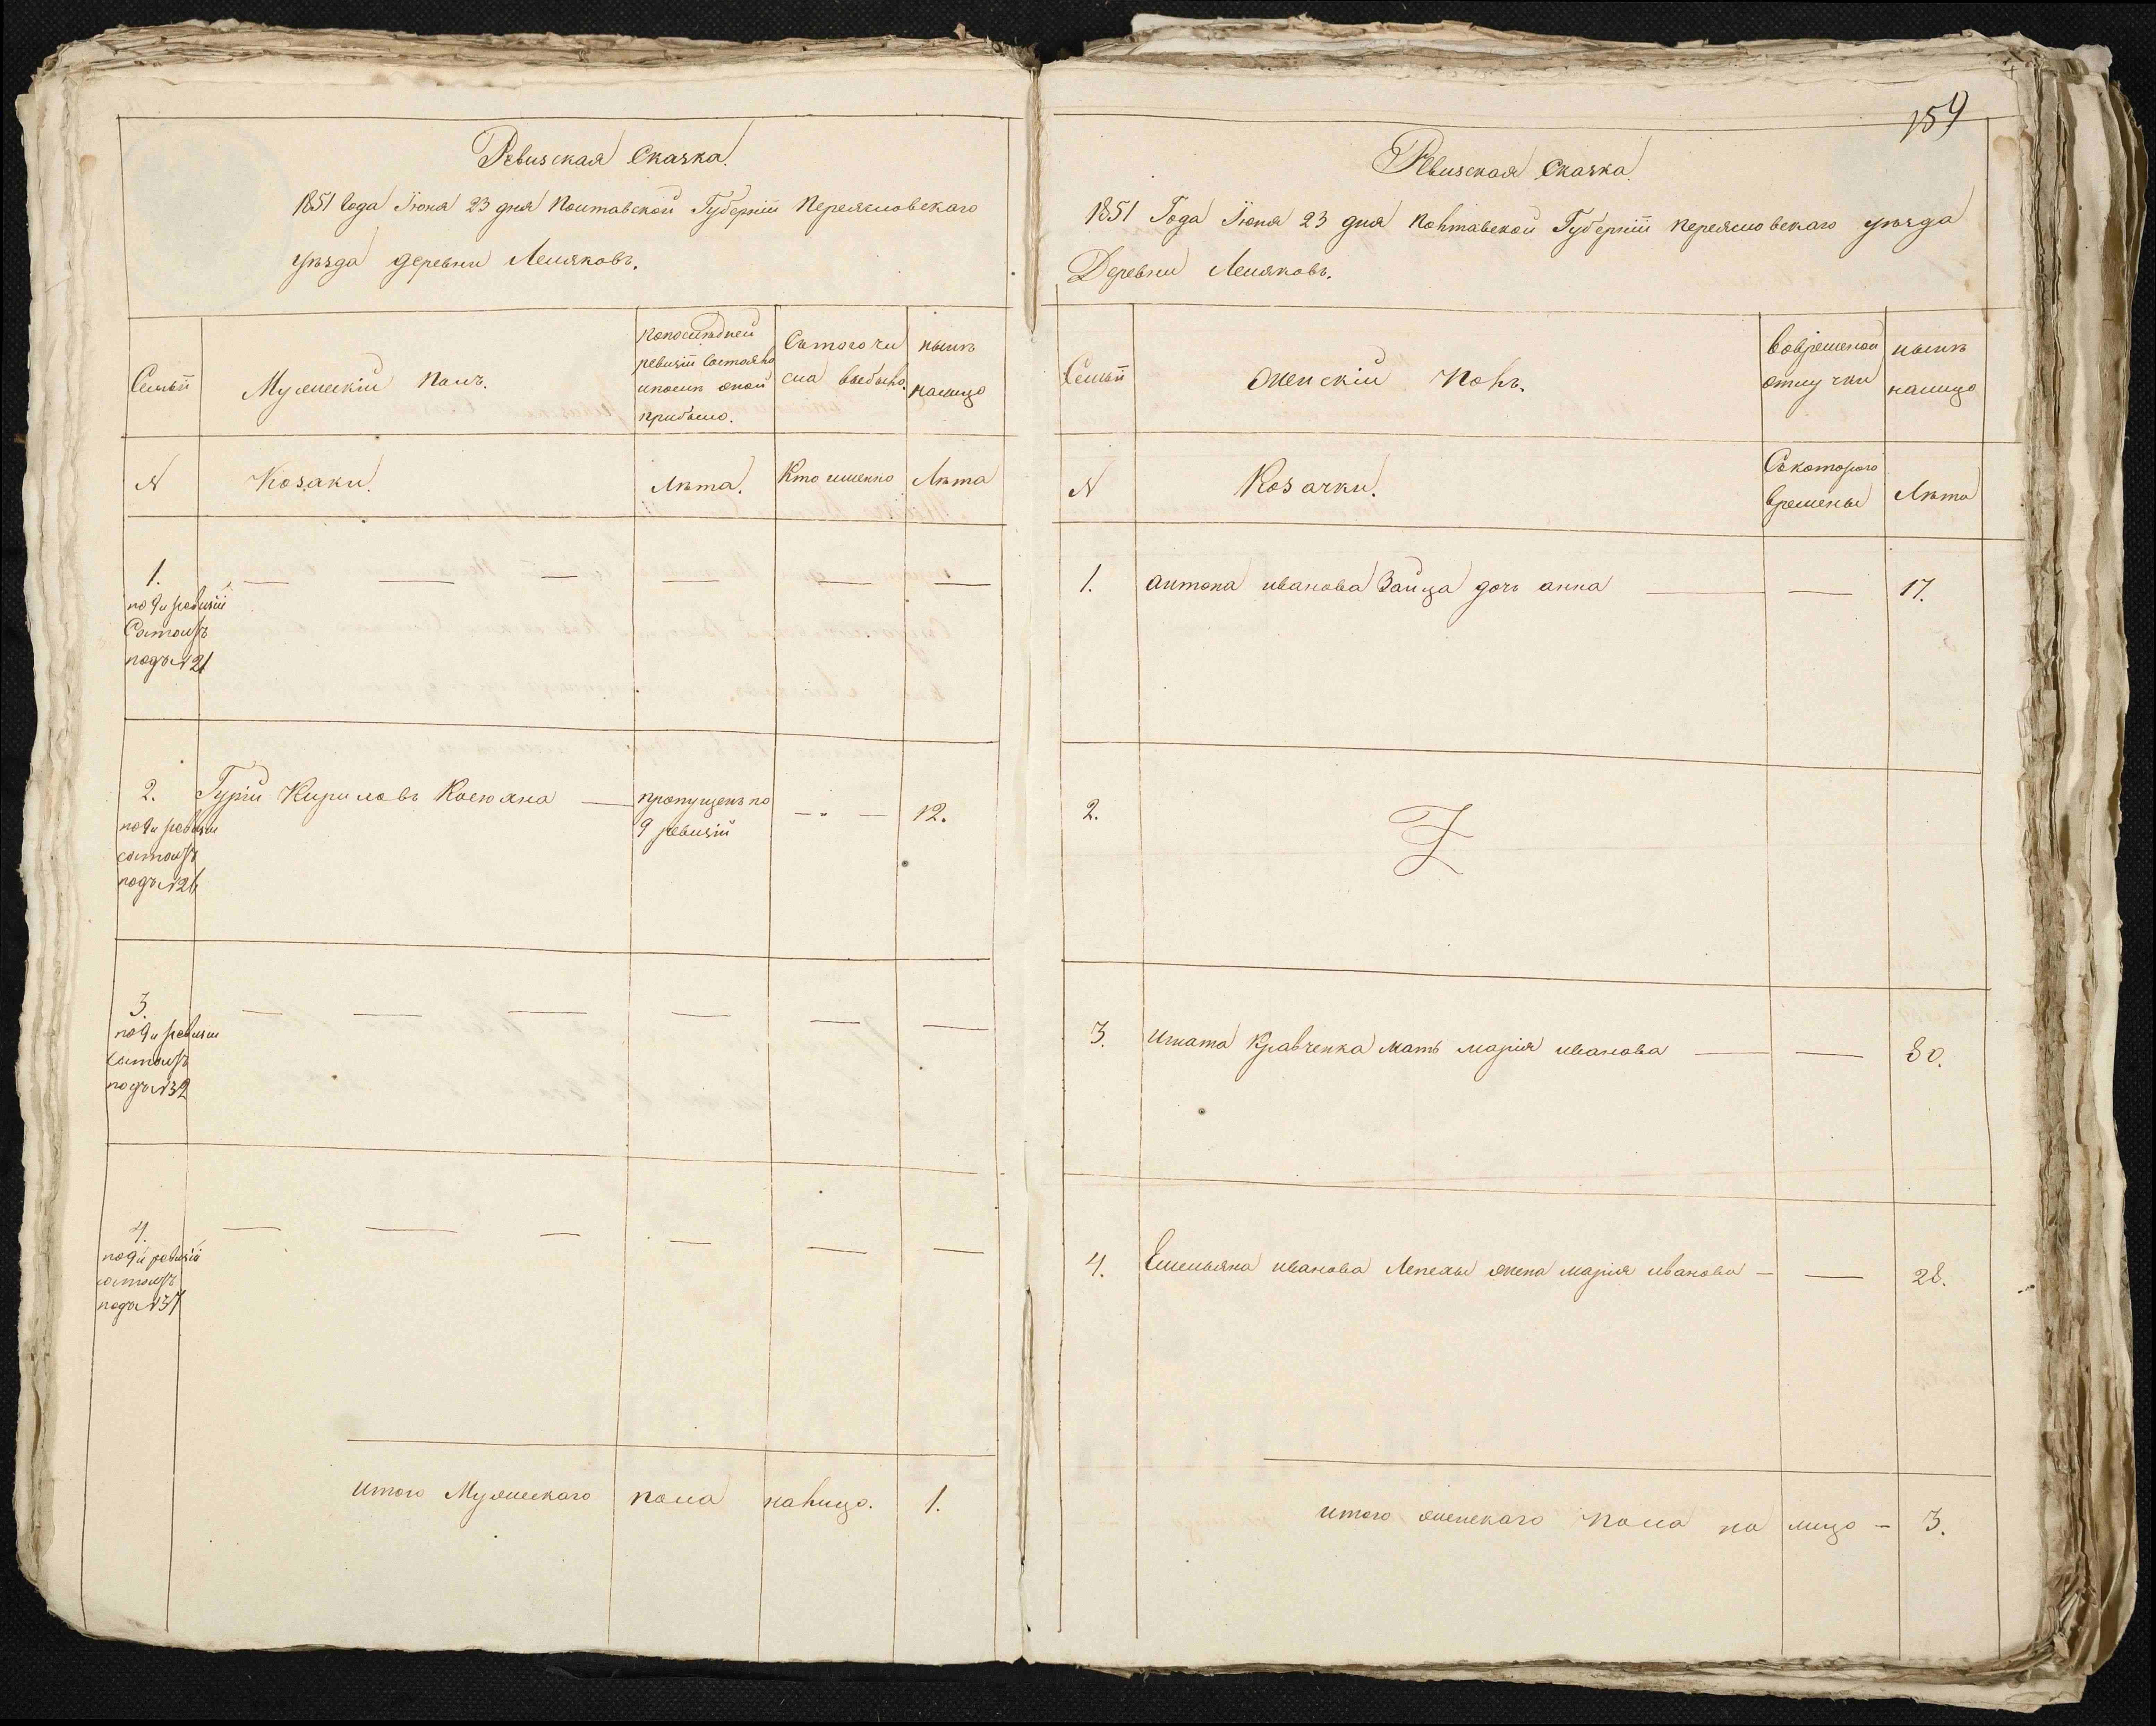 Ревизская Сказка.
1851 Года Іюня 23 дня Полтавской Губерніи Переясловскаго
уѣзда деревни Лемяковъ.
Семьи
Мужескій Полъ.
Попослѣдней
ревизіи состояло
ипослѣ оной
прибыло.
Съ того чи
сла выбыло.
нынѣ
налицо
№
Козаки.
Лѣта.
Кто именно
Лѣта
1.
по 9й ревизіи
Состоитъ
подъ №21
2.
по 9й ревизіи
состоитъ
подъ №26
Гурій Кириловъ Косюана
пропущенъ по
9 ревизіи
12.
3.
по 9й ревизіи
состоитъ
подъ №32
4.
по 9й ревизіи
состоитъ
подъ №37
итого Мужескаго пола налицо. 1.
159
Ревизская Сказка.
1851 Года Іюня 23 дня Полтавской Губерніи Переясловскаго уѣзда
Деревни Лемяковъ.
Семьи
Женскій Полъ.
Вовременой
отлучки
нынѣ
налицо
№
Козачки.
Съкоторого
времены
Лѣта
1. антона иванова Зайца дочь анна 17.
2.
3. Игната Кравченка мать марія иванова 80.
4. Емельяна иванова Лепехы жена марія иванова 28.
итого женскаго пола на лицо - 3.